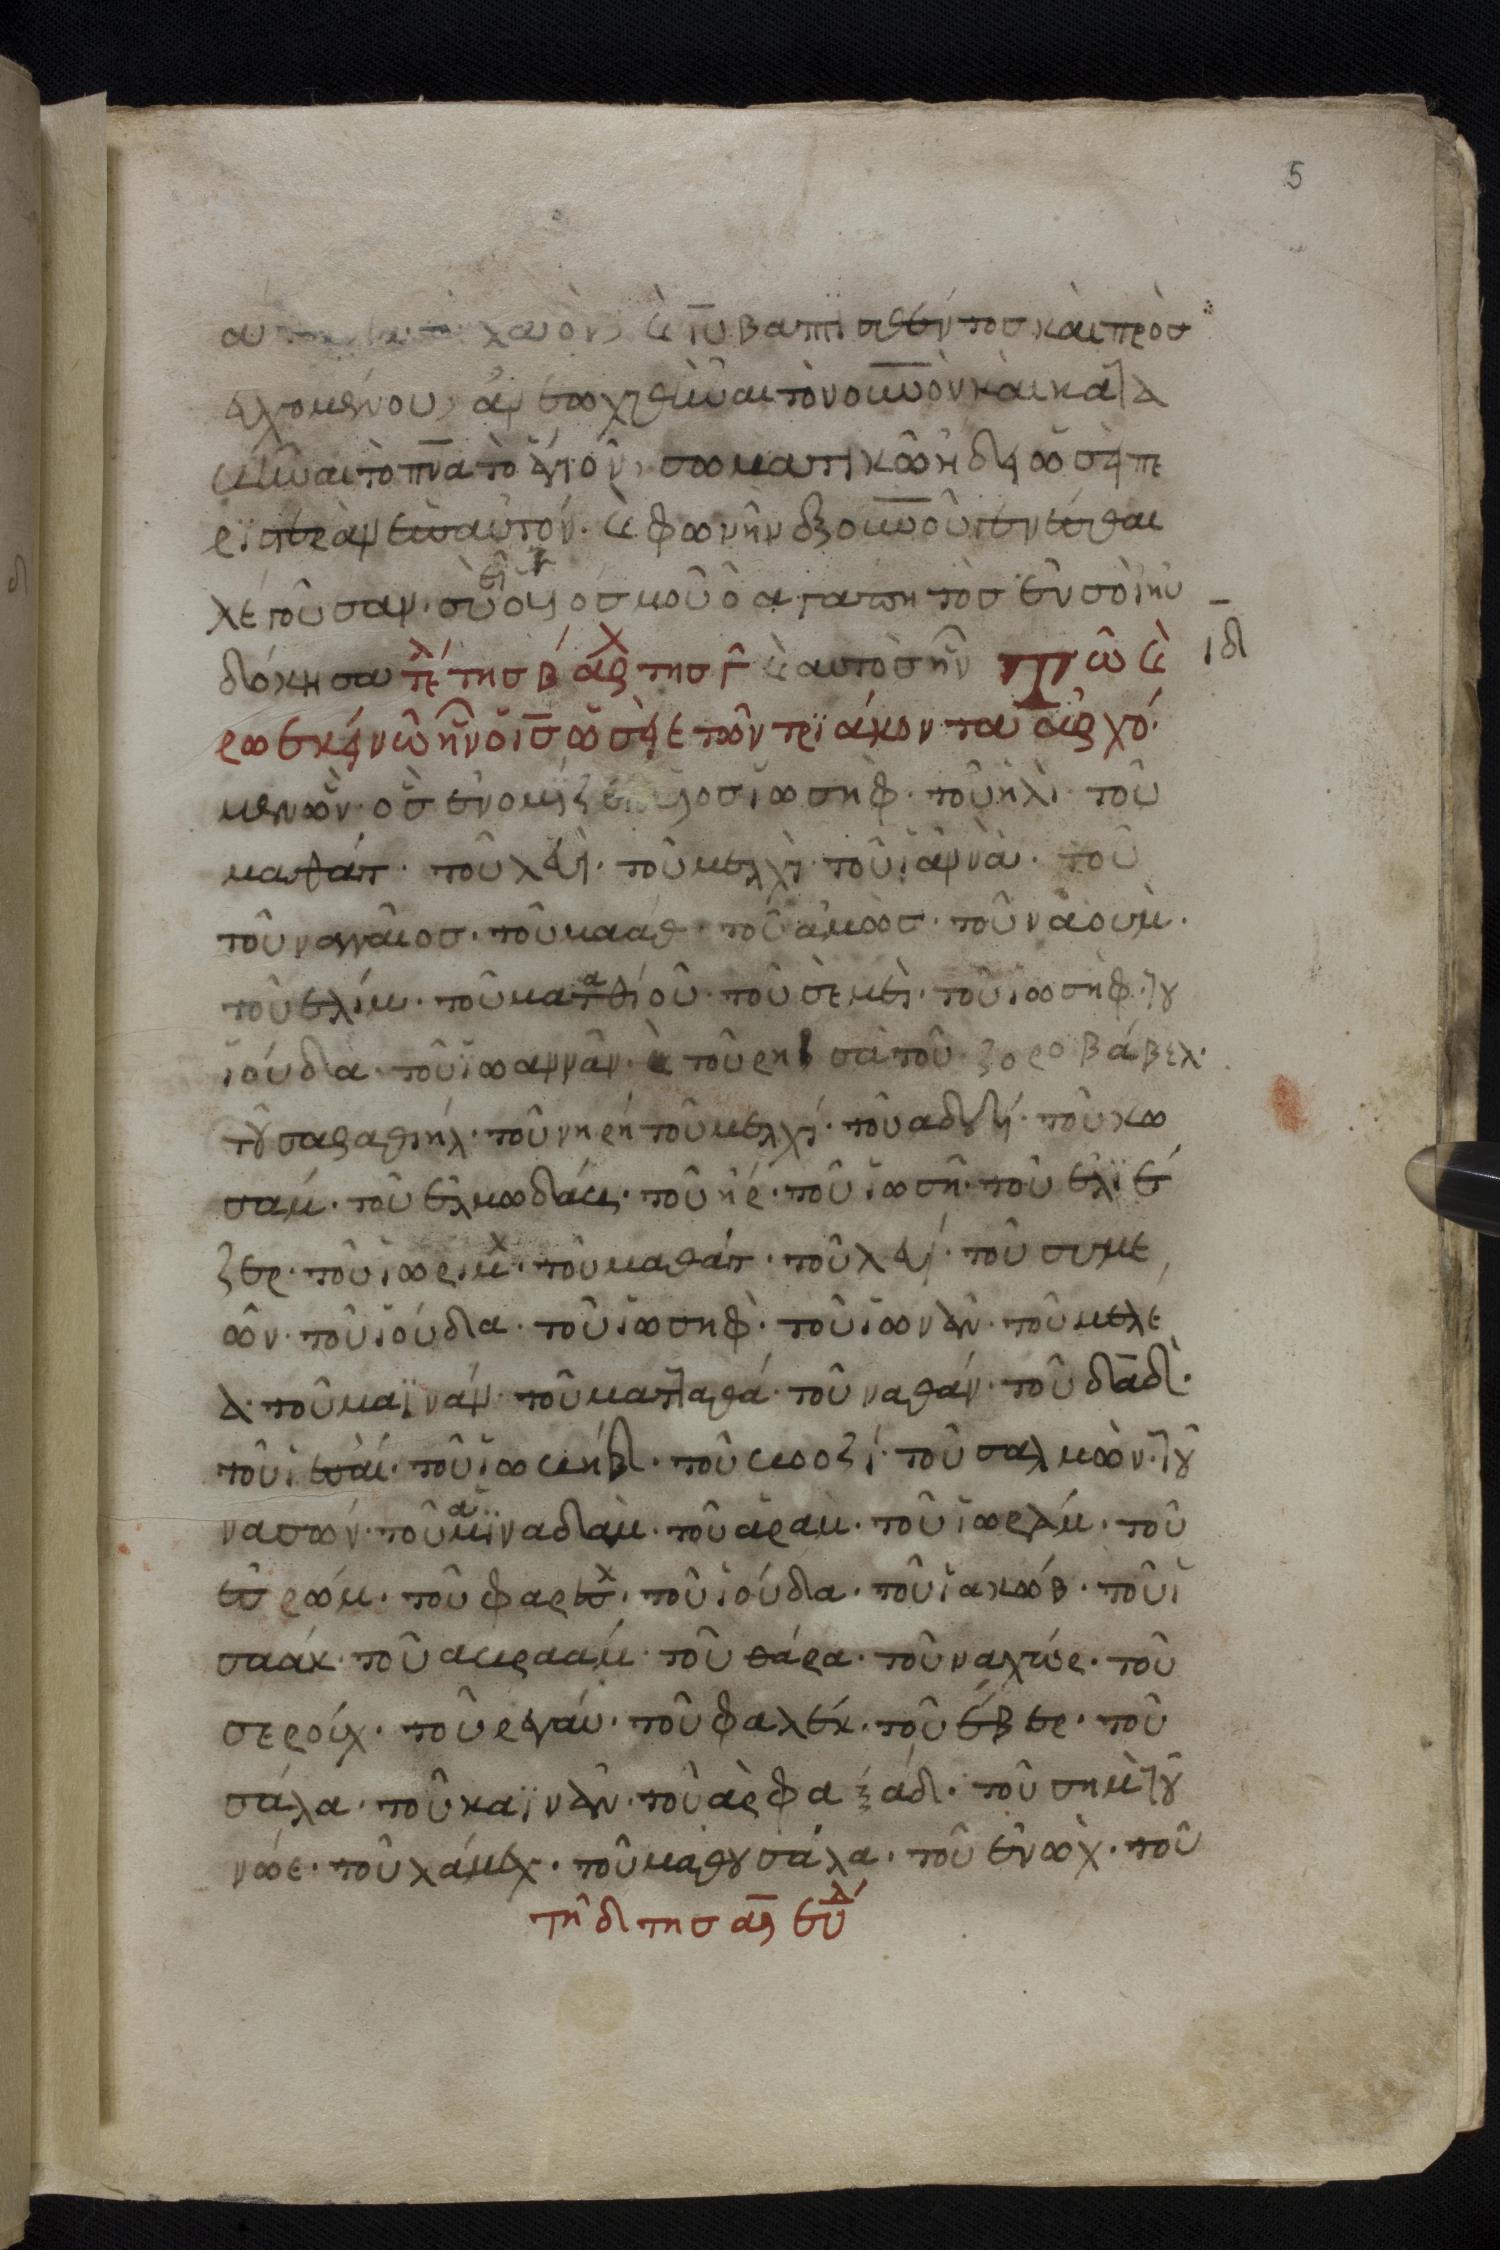 5
λαὸν, κ(αὶ) ιῡ βαπτισθέντος καὶ προσ
ευχομένου, ἀνεωχθῆναι τὸν οὐνὸν καὶ κατα
βῆναι τὸ πνα τὸ ἅγιον, σωματικῶ ἤδει ὡσεὶ πε
ρϊστερὰν ἐπαὐτόν. κ(αὶ) φωνὴν ἐξ οὐνοῦ γενέσθαι
λέγουσαν. σὺ εἶ ὁ υἱός μοῦ ὁ ἀγαπητὸς ἐν σοὶ ηὐ
δόκησα τέλ τῆς β ἀρχ τῆς γ κ(αὶ) αυτὸς ἦν Τῶ κ(αι) ιδ
ρω ἐκείνω ἦν ὁ ις ὡσεὶ ἐτῶν τρϊάκοντα ἀρχό
μενων. ὡς ἐνομίζετο υἱὸς ϊωσὴφ. τοῦ ηλὶ. τοῦ
ματθάτ. τοῦ λευί. τοῦ μελχὶ. τοῦ ϊαννὰ. τοῦ
τοῦ ναγγαῖος. τοῦ μαάθ. τοῦ ἀμὼς. τοῦ νάουμ.
τοῦ ελίμ. τοῦ ματταθίου. τοῦ σεμεὶ. τοῦ ϊωσὴφ. του
ϊούδα. τοῦ ϊωαννᾶν. τοῦ ρησὰ τοῦ ζοροβάβελ.
του σαλαθιήλ. τοῦ νηρή τοῦ μελχί. τοῦ αδδί. τοῦ κω
σάμ. τοῦ ελμωδάμ. τοῦ ήρ. τοῦ ϊωσῆ. τοῦ ελϊέ
ζερ. τοῦ ϊωριμ. τοῦ μαθάτ. τοῦ λευί. τοῦ συμε
ών. τοῦ ϊούδα. τοῦ ϊωσηφ. τοῦ ϊωνάν. τοῦ μελε
α. τοῦ μαϊνάν. τοῦ ματταθά. τοῦ ναθάν. τοῦ δᾱδ.
τοῦ ϊεσαί. τοῦ ϊωβήδ. τοῦ βοοζί. τοῦ σαλμών. του
νασών. τοῦ αμϊναδάμ. τοῦ ἀράμ. τοῦ ϊωράμ. τοῦ
εσρώμ. τοῦ φαρες. τοῦ ϊούδα. τοῦ ϊακώβ. τοῦ ϊ
σαάκ. τοῦ αβραάμ. τοῦ θάρα. τοῦ ναχώρ. τοῦ
σερούχ. τοῦ ραγαύ. τοῦ φαλέκ. τοῦ έβερ. τοῦ
σάλα. τοῦ καϊνάν. τοῦ ἀρφαξάδ. τοῦ σημ του
νώε. τοῦ λάμεχ. τοῦ μαθουσάλα. τοῦ ενὼχ. τοῦ
τῆ δ τῆς